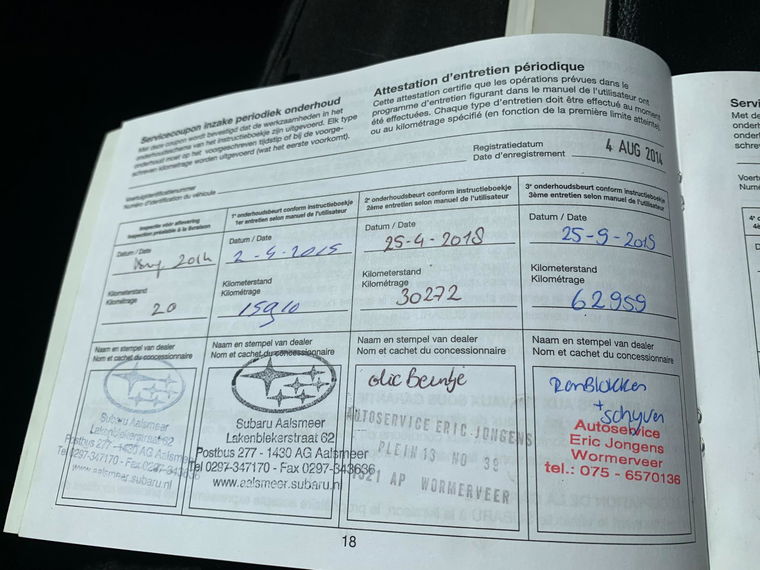 Servicecoupon inzake periodiek onderhoud
Met deze coupon wordt bevestigd dat de werkzaamheden in het
onderhoudsschema van het instructieboekje zijn uitgevoerd. Elk type
onderhoud moet op het voorgeschreven tijdstip of bij de voorge-
schreven kilometrage worden uitgevoerd (wat het eerste voorkomt).
Attestation d'entretien périodique
Cette attestation certifie que les opérations prévues dans le
programme d'entretien figurant dans le manuel de l'utilisateur ont
été effectuées. Chaque type d'entretien doit être effectué au moment
ou au kilométrage spécifié (en fonction de la première limite atteinte).
Registratiedatum
Date d'enregistrement
4 AUG 2014
Voertuigidentificatienummer
Numéro d'identification du véhicule
Inspectie vóór aflevering
Inspection préalable à la livraison
Datum / Date
2014
Kilometerstand
Kilométrage
20
Naam en stempel van dealer
Nom et cachet du concessionnaire
Subaru Aalsmeer
Lakenblekerstraat 62
Postbus 277 - 1430 AG Aalsmeer
Tel 0297-347170 - Fax 0297-343636
www.aalsmeer.subaru.nl
1e onderhoudsbeurt conform instructieboekje
1er entretien selon manuel de l'utilisateur
Datum / Date
2-4-2015
Kilometerstand
Kilométrage
15910
Naam en stempel van dealer
Nom et cachet du concessionnaire
Subaru Aalsmeer
Lakenblekerstraat 62
Postbus 277 - 1430 AG Aalsmeer
Tel 0297-347170 - Fax 0297-343636
www.aalsmeer.subaru.nl
2e onderhoudsbeurt conform instructieboekje
2ème entretien selon manuel de l'utilisateur
Datum / Date
25-4-2018
Kilometerstand
Kilométrage
30272
Naam en stempel van dealer
Nom et cachet du concessionnaire
olie Beurtje
AUTOSERVICE ERIC JONGENS
PLEIN 13 NO 39
1521 AP WORMERVEER
3e onderhoudsbeurt conform instructieboekje
3ème entretien selon manuel de l'utilisateur
Datum / Date
25-9-2018
Kilometerstand
Kilométrage
62959
Naam en stempel van dealer
Nom et cachet du concessionnaire
RemBlokken
+ schijven
Autoservice
Eric Jongens
Wormerveer
tel.: 075 - 6570136
18